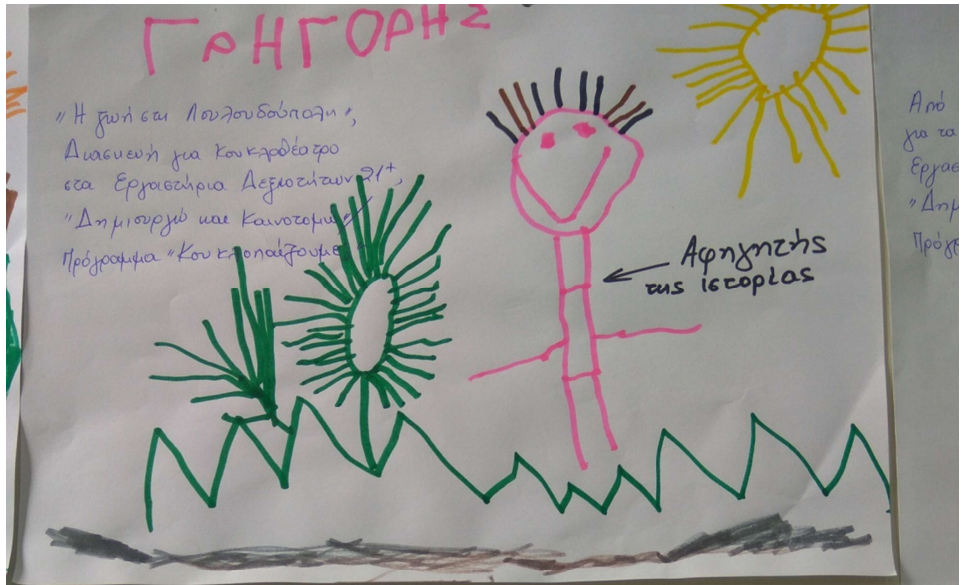 ΓΡΗΓΟΡΗΣ
"Η ζωή στη Λουλουδούπολη",
Διασκευή για Κουκλοθέατρο
στα Εργαστήρια Δεξιοτήτων 21+,
"Δημιουργώ και Καινοτομώ"
Πρόγραμμα "Κουκλοπαίζουμε"
Αφηγητής
της ιστορίας
Από
για τα